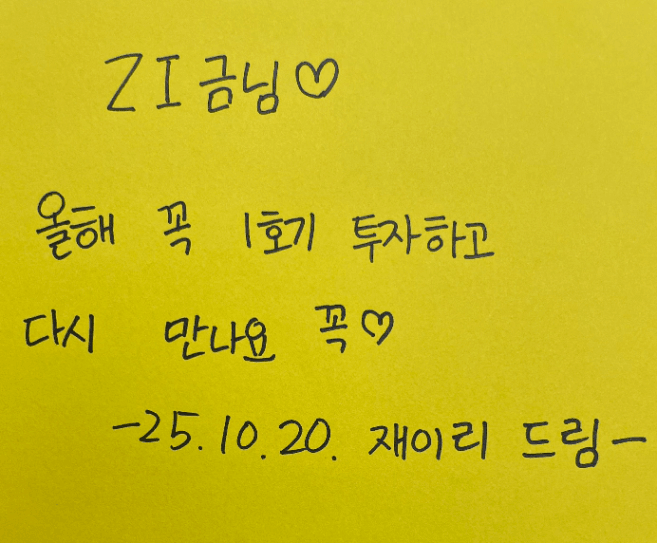 ZI금님♡
올해 꼭 1호기 투자하고
다시 만나요 꼭♡
-25.10.20. 재이리 드림-